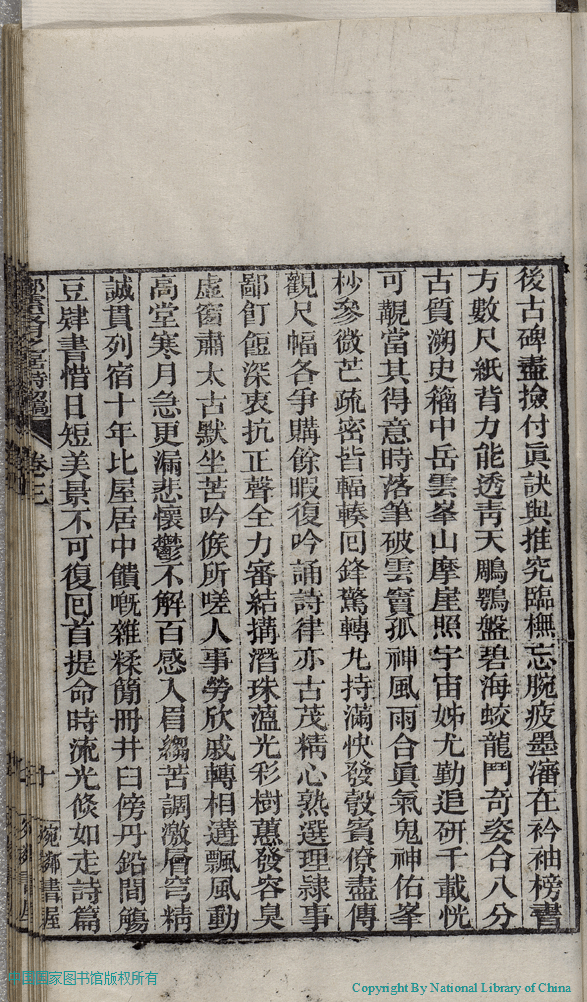 後古碑盡撿付眞訣與推究臨橅忘腕疲墨瀋在衿袖榜書
方數尺紙背力能透靑天鵰鶚盤碧海蛟龍鬥奇姿合八分
古質溯史籀中岳雲峯山摩崖照宇宙姊尤勤追研千載恍
可覯當其得意時落筆破雲竇孤神風雨合眞氣鬼神佑峯
杪參微芒疏密皆輻輳囘鋒驚轉丸持滿快發彀賓僚盡傳
觀尺幅各爭購餘暇復吟誦詩律亦古茂精心熟選理隸事
鄙飣餖深衷抗正聲全力審結搆潛珠蘊光彩樹蕙發容臭
虛窗肅太古默坐苦吟候所嗟人事勞欣戚轉相遘飄風動
高堂寒月急更漏悲懷鬱不解百感入眉縐苦調激層穹精
誠貫列宿十年比屋居中饋嘅雜糅簡冊井臼傍丹鉛間觴
豆肄書惜日短美景不可復囘首提命時流光倐如走詩篇
卷三
十
宛鄰書屋
国家图书馆版权所有
Copyright By National Library of China